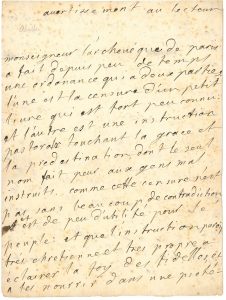 avertissement au lecteur
monseigneur l'archeveque de paris
a fait depuis peu de temps
une ordonance qui a deux parties
l'une est la censure d'un petit
livre qui est fort peu connu
et l'autre est une instruction
pastorale touchant la grace et
la predestination dont le seul
nom fait peur aux gens mal
instruits. comme cette censure n'est
pas sans beaucoup de contradiction
est de peu d'utilité pour le
peuple et que l'instruction paroit
tres chretienne et tres propre a
eclairer la foy des fidelles et
les nourrir dans une